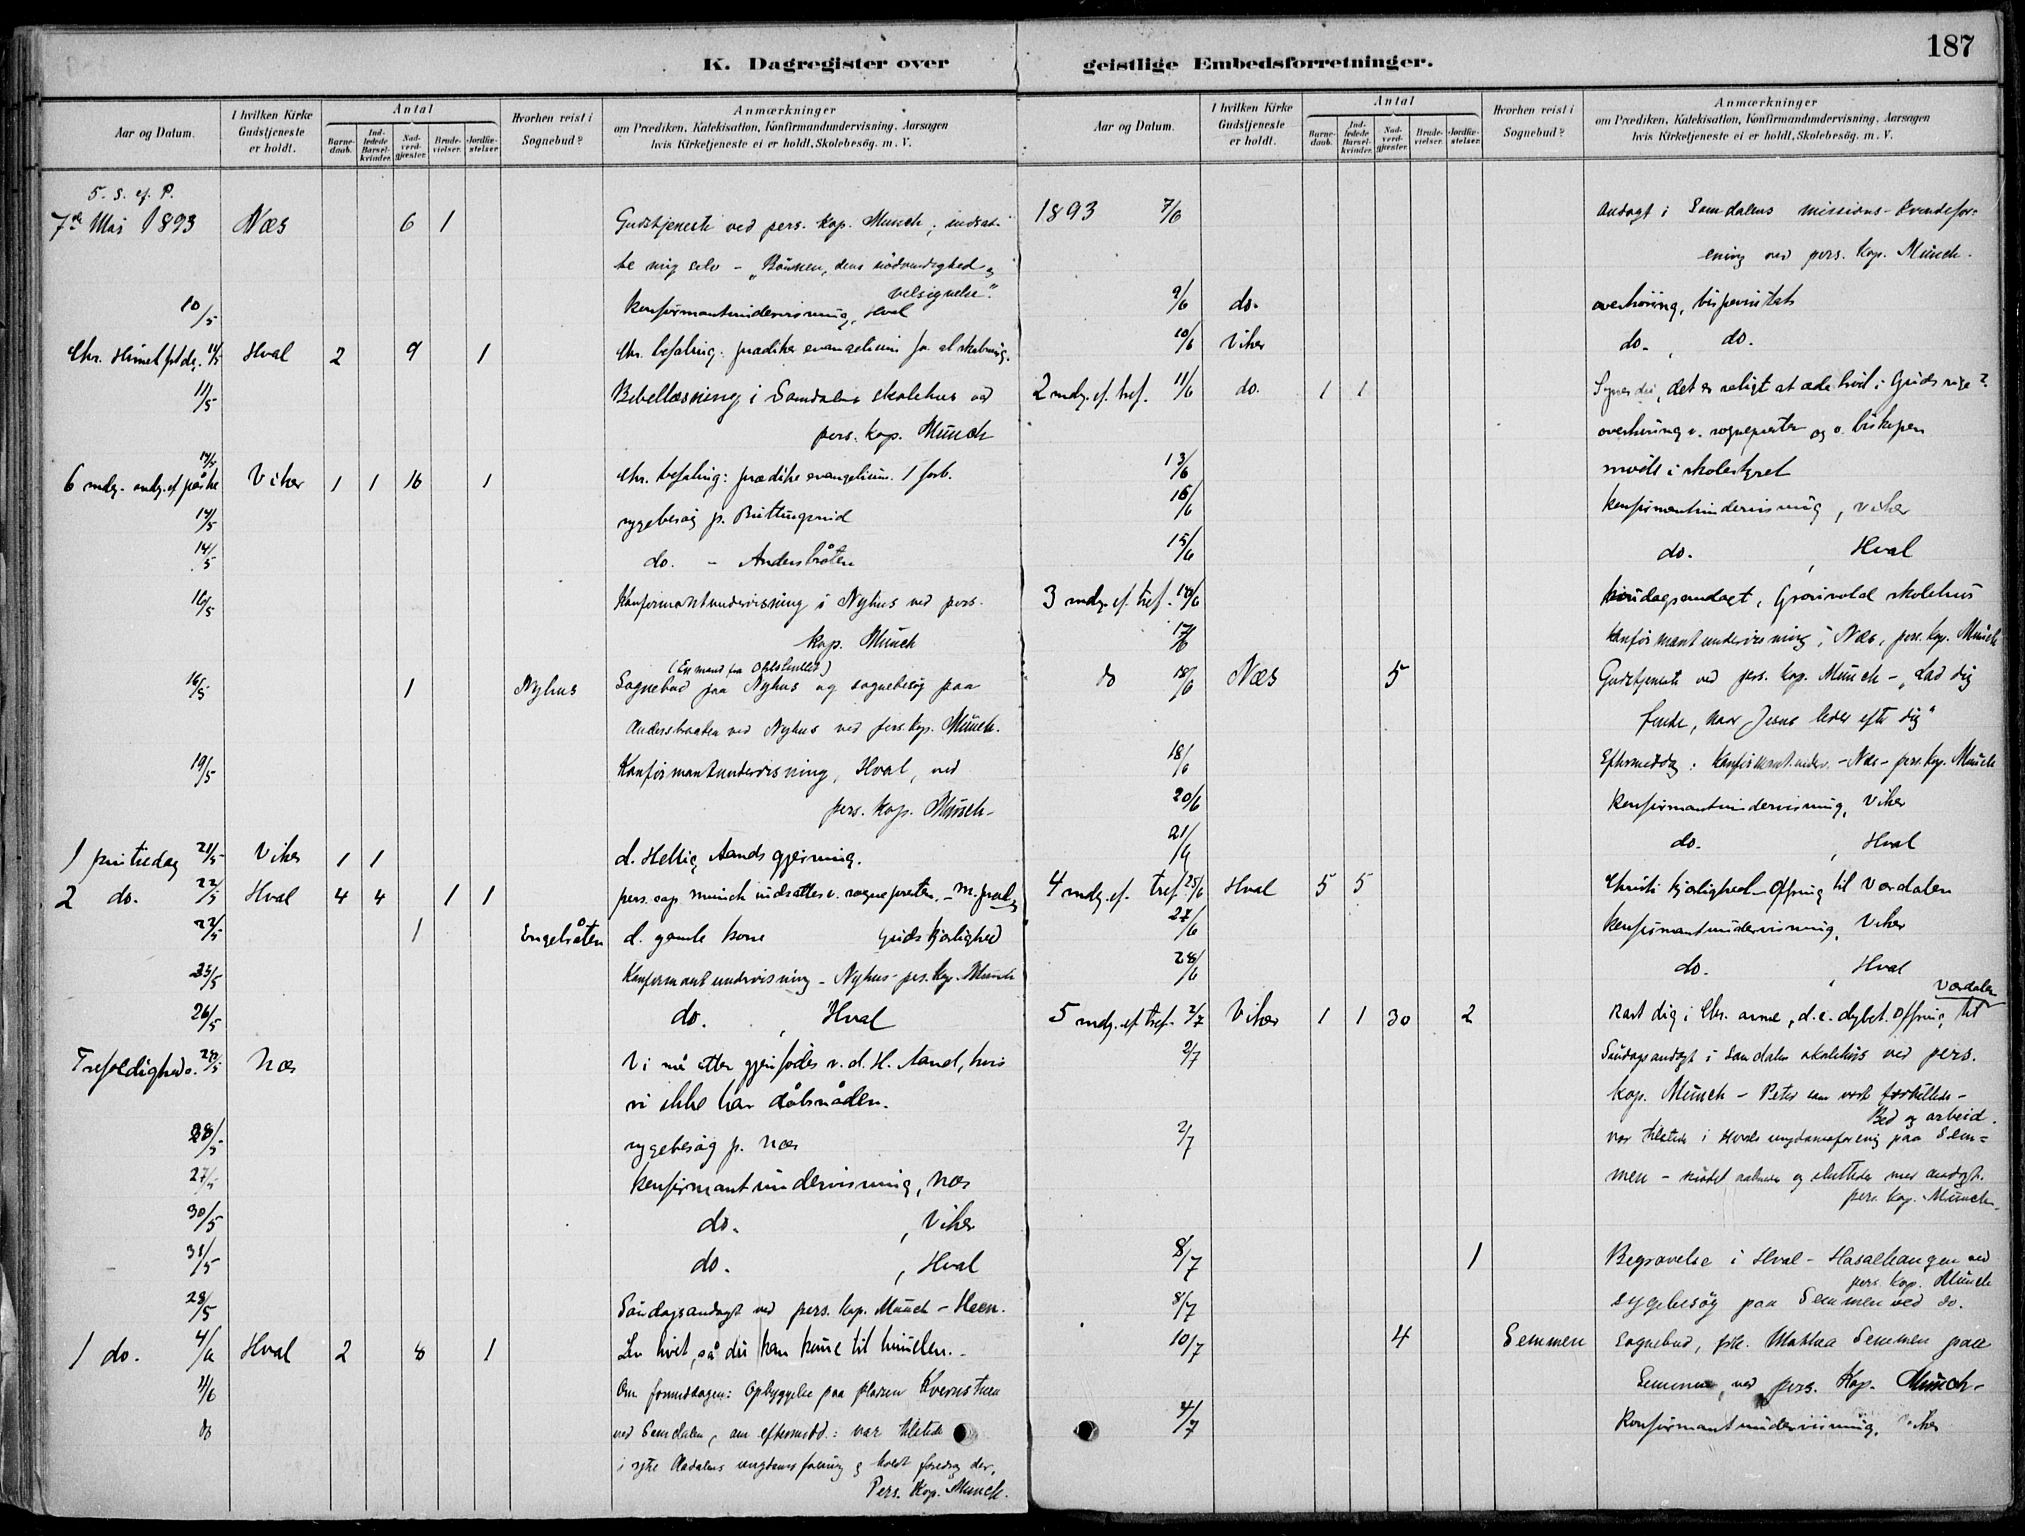 187
K. Dagregister over geistlige Embedsforretninger.
Aar og Datum.
I hvilken Kirke Gudstjeneste er holdt.
Antal
Barnedaab.
Indledede Barselkvinder.
Nadverdgjæster.
Brudevielser.
Jordfæstelser.
Hvorhen reist i Sognebud?
Anmærkninger
om Prædiken, Katekisation, Konfirmandundervisning, Aarsagen
hvis Kirketjeneste ei er holdt, Skolebesög. m. V.
5. S. ef. P.
7de Mai 1893 Næs 6 1 Gudstjeneste ved pers. kap. Munch; indsat-
te mig selv - "Bönnen, dens nödvendighed og
velsignelse".
10/5 konfirmantundervisning, Hval
Chr. Himmelf. 11/5 Hval 2 9 1 Chr. befaling: prædiker evangelium for al skabning.
11/5 Bibellæsning i Somdalens skolehus ved
pers. kap. Munch
6 14/5 Viker 1 1 16 1 Chr. befaling: prædike evangelium. 1 forb.
14/5 sygebesøg p.
14/5 do. - Andersbråten
16/5 Konfirmantundervisning i Nyhus ved pers.
kap. Munch
16/5 1 Nyhus Sognebud paa Nyhus og sognebesøg paa
Andersbraaten ved Nyhus ved pers. kap. Munch.
19/5 Konfirmantundervisning, Hval, ved
pers. kap. Munch-
1 pintsedag 21/5 Viker 1 1 d. Hellig Aands gjerning.
2 do. 22/5 Hval 4 4 1 1 pers. cap. Munch indsattes v. sognepresten. -
22/5 1 Engebråten d. gamle kone Guds kjærlighed
25/5 Konfirmantundervisning - Nyhus - pers. Kap. Munch
26/5 do. , Hval
Trefoldigheds. 28/5 Næs Vi må atter gjenfødes v. d. H. Aand, hvis
vi ikke har dåbsnåden.
28/5 sygebesøg p. Næs
27/5 konfirmantundervisning, Næs
30/5 do. , Viker
31/5 do. , Hval
28/5 Søndagsandagt ved pers. kap. Munch - Heen.
1 do. 4/6 Hval 2 8 1 Lev hvit, så du kan komme til himmelen. -
4/6 Om formiddagen: Opbyggelse paa pladsen
do ved Semdalen, om eftermidd.: var tilstede
i ytre Aadalens ungdomsforening og holdt foredrag der,
Pers. Kap. Munch.
1893 7/6 Andagt i Somdalens missions-kvindefor-
ening ved pers. kap. Munch.
9/6 do. overhøring, bispevisitats
10/6 Viker do. , do.
2 ef. tref. 11/6 do. 1 1 Synes du, det er saligt at æde brød i Guds rige?
overhøring v. sognepresten og v. biskopen
13/6 møde i skolestyret
16/6 konfirmantundervisning, Viker
15/6 do. , Hval
3 ef. tref. 18/6 søndagsandagt, Grønvold skolehus
17/6 Konfirmantundervisning i Næs, pers. kap. Munch
do 18/6 Næs 5 Gudstjeneste ved pers. kap. Munch - "Lad dig
finde, naar Jesus leder efter dig"
18/6 Eftermiddag: konfirmant.underv. - Næs - pers. kap. Munch
20/6 Konfirmantundervisning, Viker
21/6 do. , Hval
4 ef. tref. 25/6 Hval 5 5 Christi kjærlighed - Offring til Værdalen
27/6 konfirmantundervisning, Viker
28/6 do. , Hval
Værdalen
5 ef. tref. 2/7 Viker 1 1 30 2 Kast dig i Chr. arme, d. e. dybet. Offring til
2/7 Søndagsandagt i Somdalen skolehus ved pers.
kap. Munch - Peter
Bed og arbeid.
2/7 var tilstede i Hvals ungdomsforening paa Sem-
men - mødet og sluttedes med andagt.
pers. kap. Munch.
8/7 1 Begravelse i Hval - Hasalhaugen ved
pers. kap. Munch
8/7 sygebesøg paa Semmen ved do.
10/7 4 Semmen Sognebud, frk. Mathea Semmen paa
Semmen, ved pers. Kap. Munch-
4/7 Konfirmantundervisning, Viker